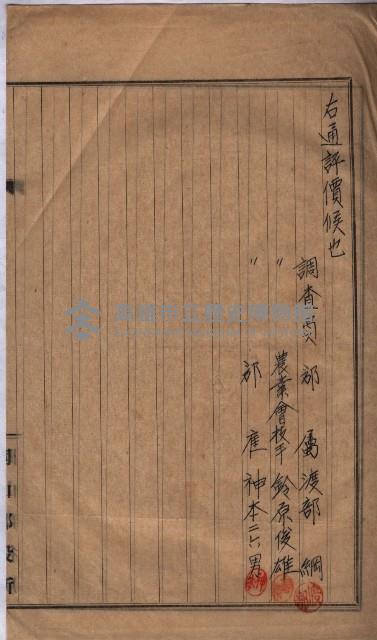 右通評價候也
調査員 郡 屬 渡部 綱
〃 農業會技手 鈴原俊雄
〃 郡 雇 神本二六男
高雄市立歷史博物館
岡山郡役所